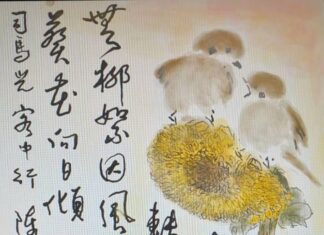 無柳絮因風
葵花向日傾
司馬光 客中行 陳